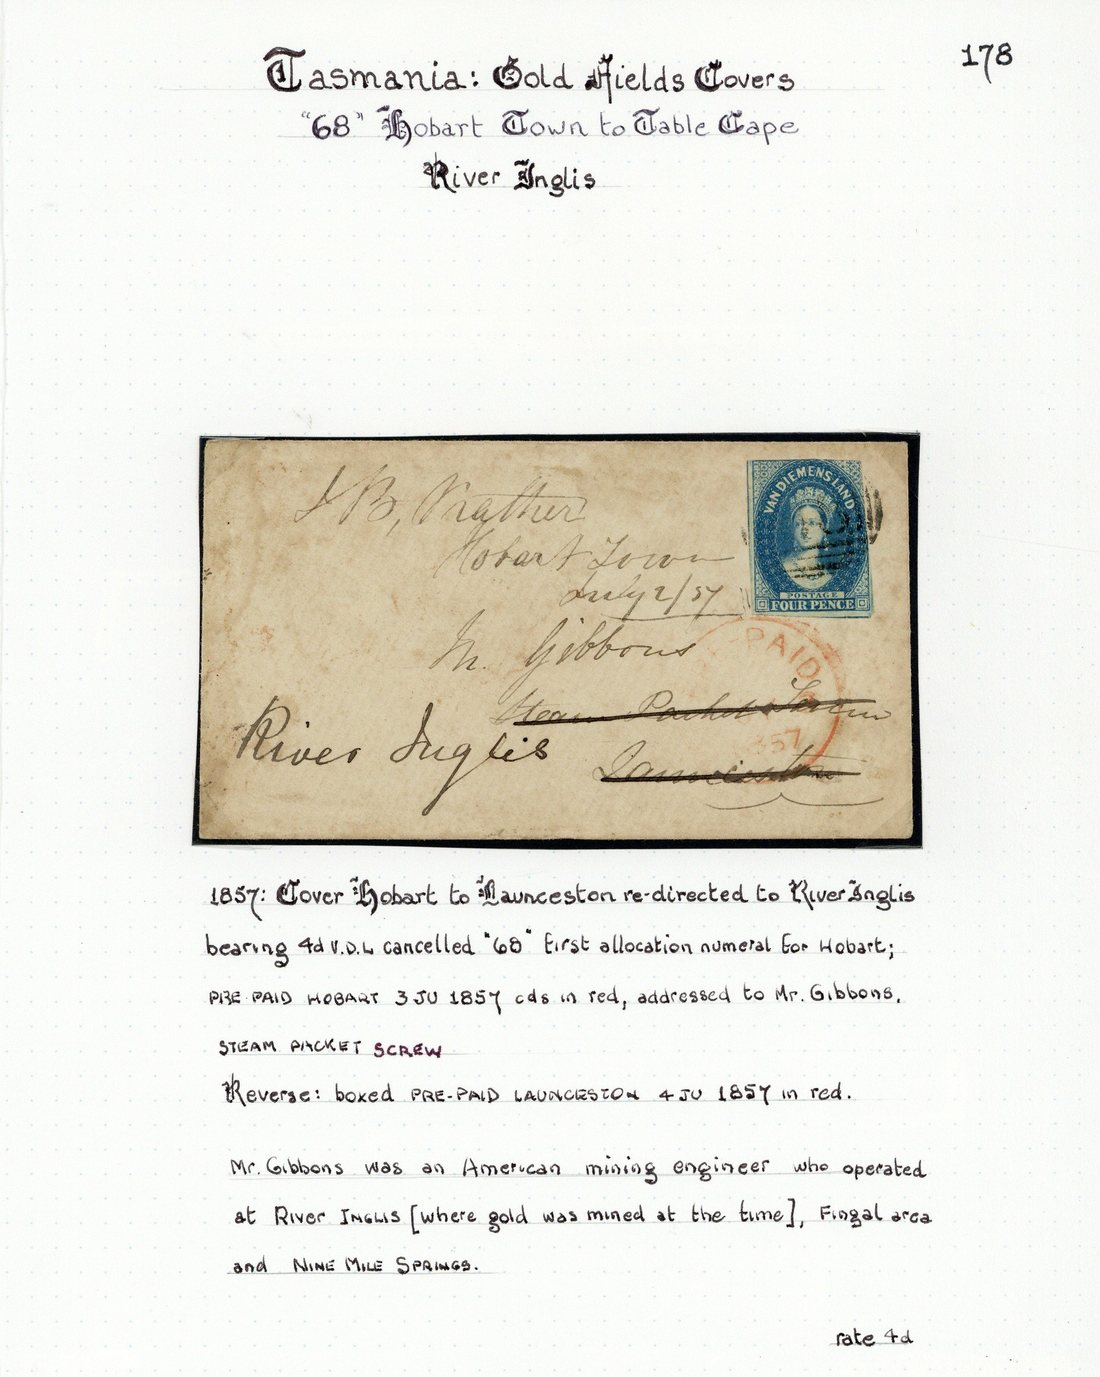 178
Tasmania: Gold Fields Covers
"68" Hobart Town to Table Cape
River Inglis
J B,
Hobart Town
July 2/57
VAN DIEMENS LAND
POSTAGE
FOUR PENCE
M. Gibbons
PAID
Steam Packet
857
River Inglis
Launceston
1857: Cover Hobart to Launceston re-directed to River Inglis
bearing 4d V.D.L cancelled "68" first allocation numeral for Hobart;
PRE PAID HOBART 3 JU 1857 cds in red, addressed to Mr. Gibbons,
STEAM PACKET SCREW
Reverse: boxed PRE-PAID LAUNCESTON 4 JU 1857 in red.
Mr. Gibbons was an American mining engineer who operated
at River INGLIS [where gold was mined at the time], Fingal area
and NINE MILE SPRINGS.
rate 4d